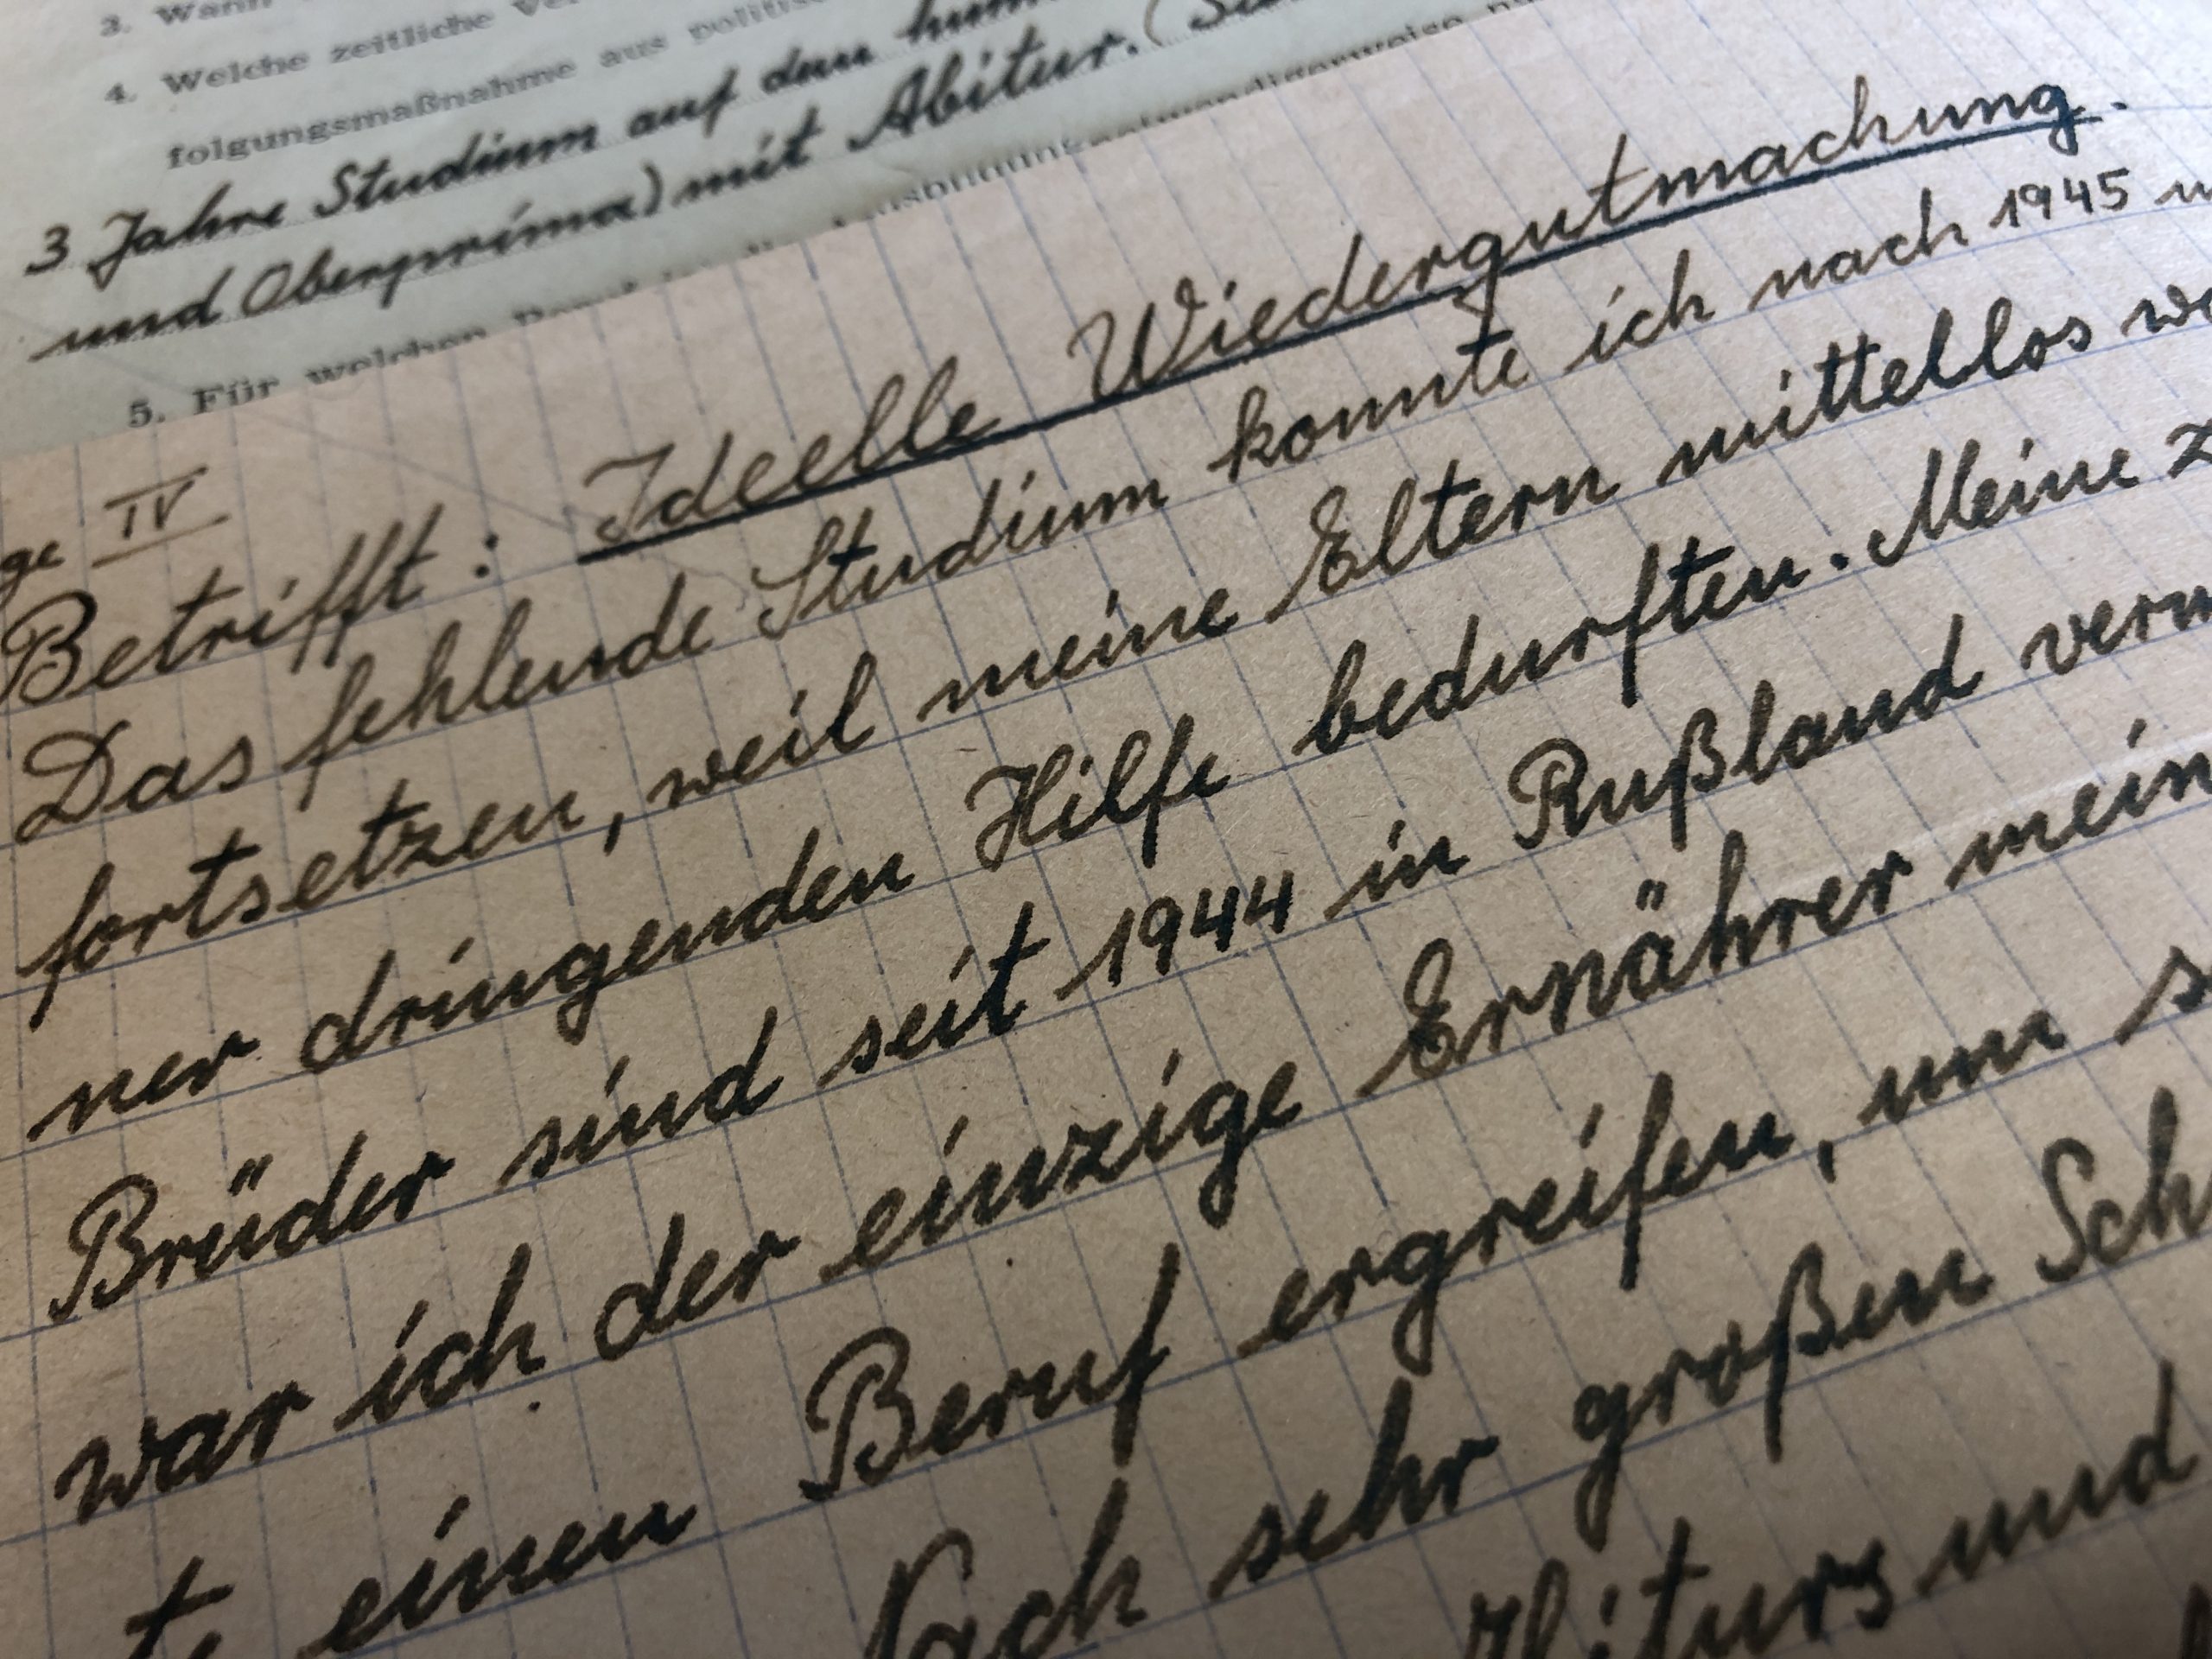 3. Wann
4. Welche zeitliche
folgungsmaßnahme aus
3 Jahre Studium auf dem
und Oberprima) mit Abitur. (
5. Für welchen
IV
Betrifft: Ideelle Wiedergutmachung.
Das fehlende Studium konnte ich nach 1945
fortsetzen, weil meine Eltern mittellos
ner dringenden Hilfe bedurften. Meine
Brüder sind seit 1944 in Rußland
war ich der einzige Ernährer
einen Beruf ergreifen, um
Nach sehr großen
und